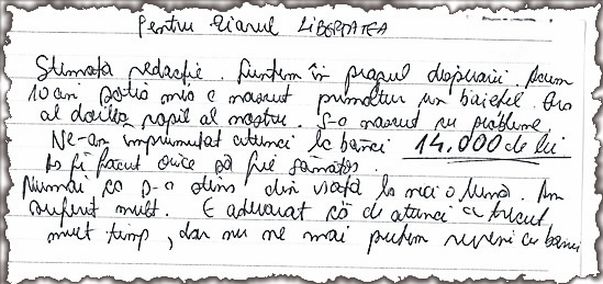 Pentru ziarul LIBERTATEA
Stimată redacție. Suntem în pragul disperării. Acum
10 ani soția mea a născut prematur un băiețel. Era
al doilea copil al nostru. S-a născut cu probleme.
Ne-am împrumutat atunci la bănci 14.000 de lei
Aș fi făcut orice să fie sănătos.
Numai că s-a stins din viață la nici o lună. Am
suferit mult. E adevărat că de atunci a trecut
mult timp, dar nu ne mai putem reveni cu banii